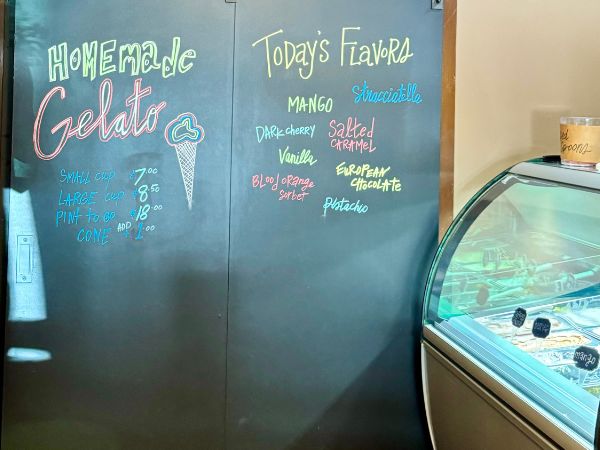 HOMEMADE
Gelato
SMALL CUP $7.00
LARGE CUP $8.50
PINT TO GO $18.00
CONE ADD $1.00
TODAY'S FLAVORS
Stracciatella
MANGO
DARK CHERRY
SALTED
CARAMEL
Vanilla
EUROPEAN
CHOCOLATE
BLOOD ORANGE
SORBET
Pistachio
mango